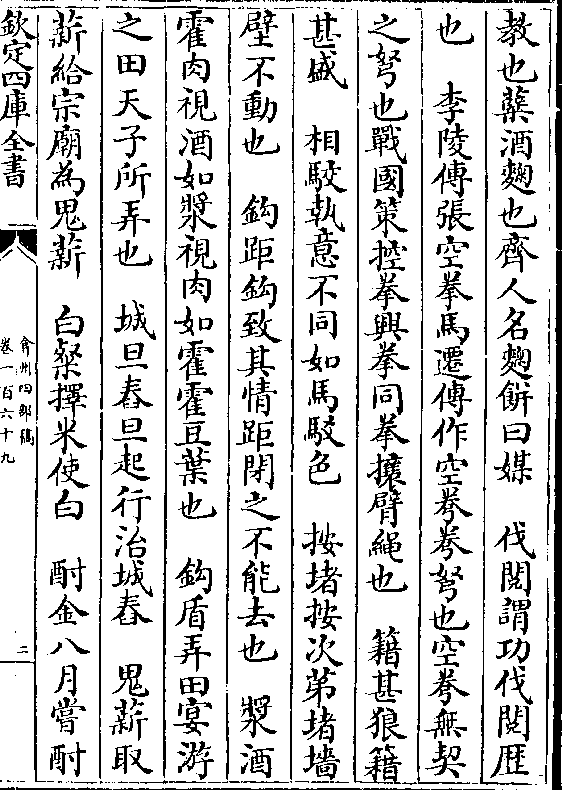 教也蘖酒麴也齊人名麴餅曰媒　伐閱謂功伐閱歴
也　李陵傳張空拳馬遷傳作空弮弮弩也空弮無契
之弩也戰國策控拳興拳同拳攘臂繩也　籍甚狼籍
甚盛　相駮執意不同如馬駮色　按堵按次第堵墻
壁不動也　鈎距鈎致其情距閉之不能去也　漿酒
霍肉視酒如漿視肉如霍霍豆葉也　鈎盾弄田宴游
之田天子所弄也　城旦舂旦起行治城舂　鬼薪取
薪給宗廟為鬼薪　白粲擇米使白　酎金八月嘗酎
欽定四庫全書
弇州四部稿
卷一百六十九
二